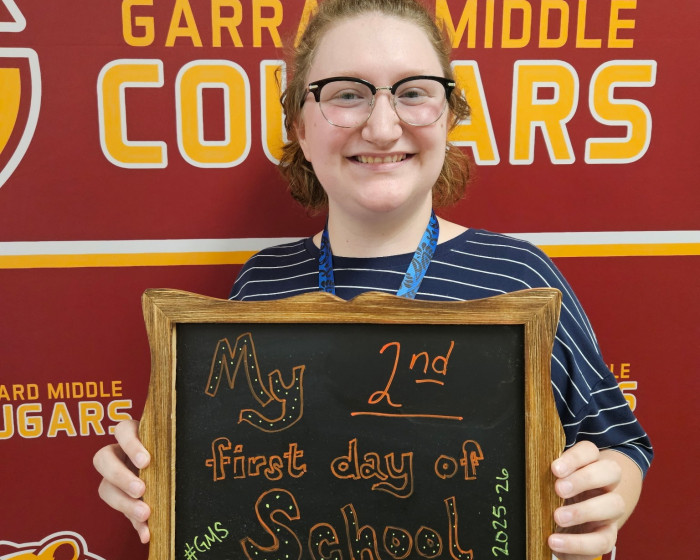 GARRA MIDDLE
COU ARS
ARD MIDDLE
UGARS
LE
S
My 2nd
first day of
School
#GMS
2025-26